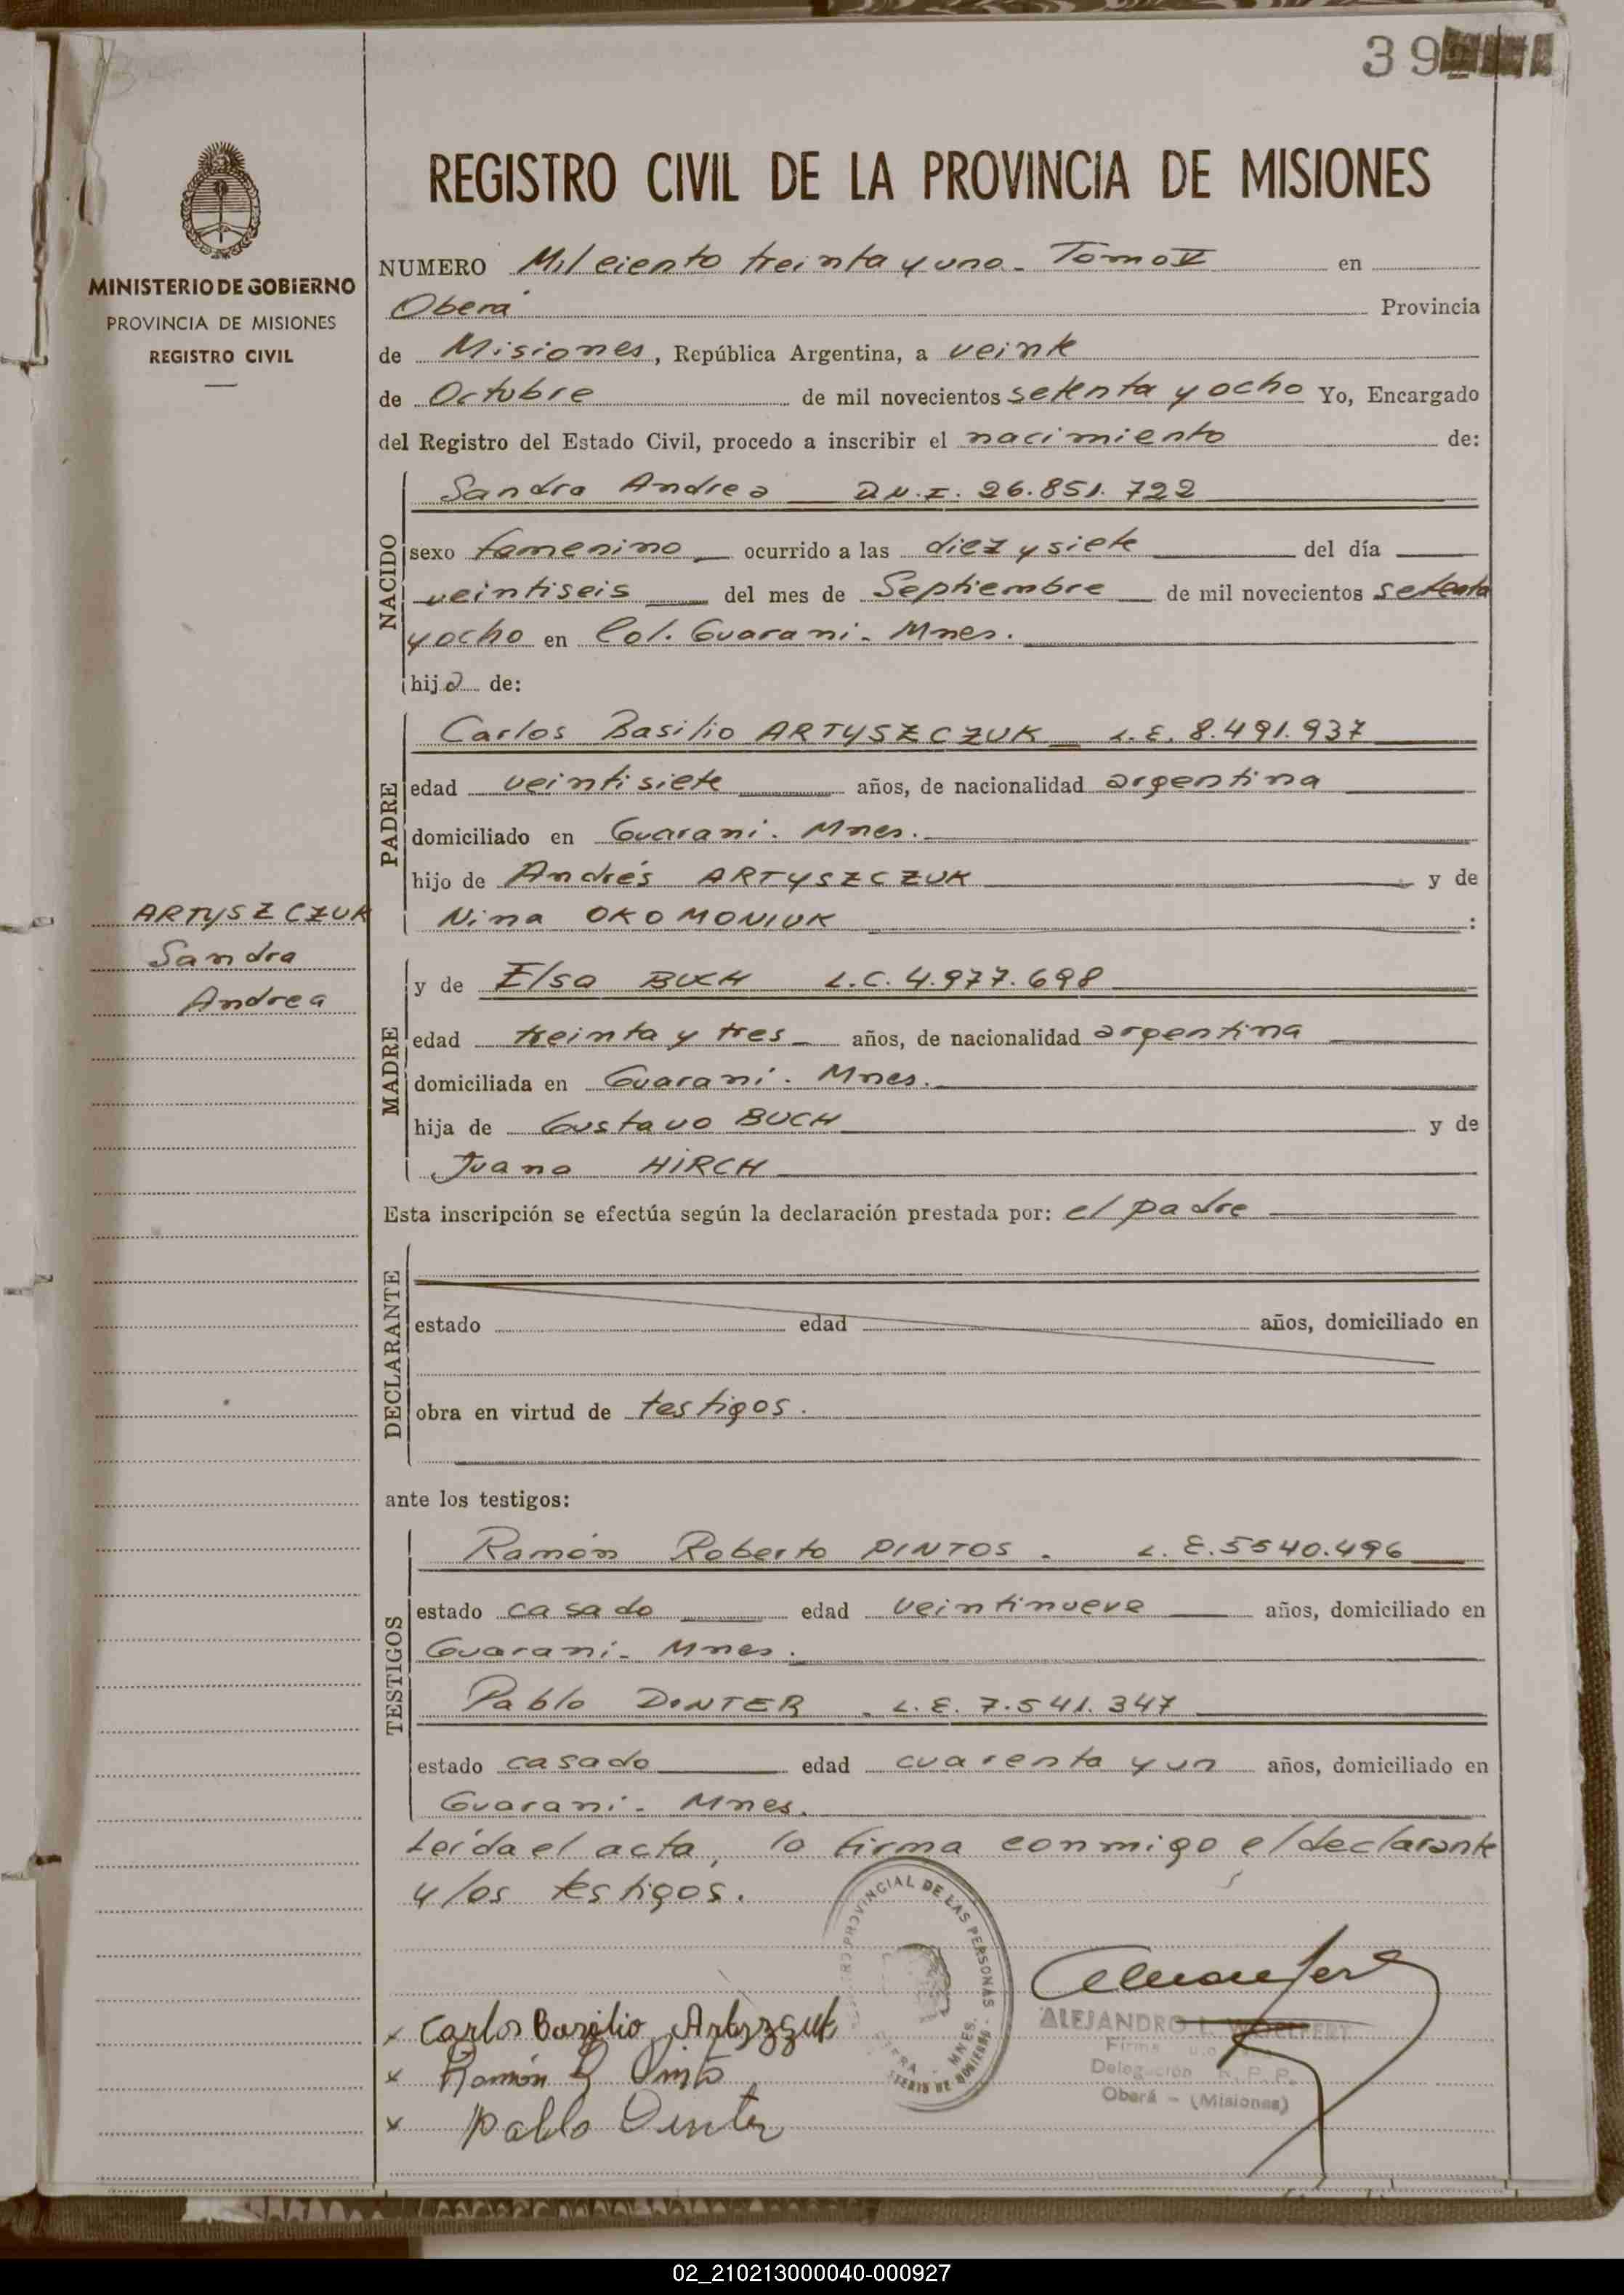 39
REGISTRO CIVIL DE LA PROVINCIA DE MISIONES
MINISTERIO DE GOBIERNO
PROVINCIA DE MISIONES
REGISTRO CIVIL
NUMERO Mil ciento treinta y uno - Tomo V en
Oberá Provincia
de Misiones, República Argentina, a veinte
de Octubre de mil novecientos setenta y ocho Yo, Encargado
del Registro del Estado Civil, procedo a inscribir el nacimiento de:
NACIDO
Sandra Andrea D.N.I. 26.851.722
sexo femenino ocurrido a las diez y siete del día
veintiseis del mes de Septiembre de mil novecientos setenta
y ocho en Col. Guaraní - Mnes.
hija de:
PADRE
Carlos Basilio ARTYSZCZUK L.E. 8.491.937
edad veintisiete años, de nacionalidad argentina
domiciliado en Guaraní - Mnes.
hijo de Andrés ARTYSZCZUK y de
Nina OKOMONIUK :
ARTYSZCZUK
Sandra
Andrea
MADRE
y de Elsa BUCH L.C. 4.977.698
edad treinta y tres años, de nacionalidad argentina
domiciliada en Guaraní - Mnes.
hija de Gustavo BUCH y de
Juana HIRCH
Esta inscripción se efectúa según la declaración prestada por: el padre
DECLARANTE
estado edad años, domiciliado en
obra en virtud de testigos.
ante los testigos:
TESTIGOS
Ramón Roberto PINTOS - L.E. 5540.496
estado casado edad veintinueve años, domiciliado en
Guaraní - Mnes.
Pablo DINTER - L.E. 7.541.347
estado casado edad cuarenta y un años, domiciliado en
Guaraní - Mnes.
Leída el acta, la firma conmigo el declarante
y los testigos.
PROVINCIAL DE LAS PERSONAS
MNES.
DE GOBIERNO
x Carlos Bazilio
x Ramón R Pinto
x Pablo Dinter
ALEJANDRO L.
Firma
Delegación R.P.P.
Oberá - (Misiones)
02_210213000040-000927